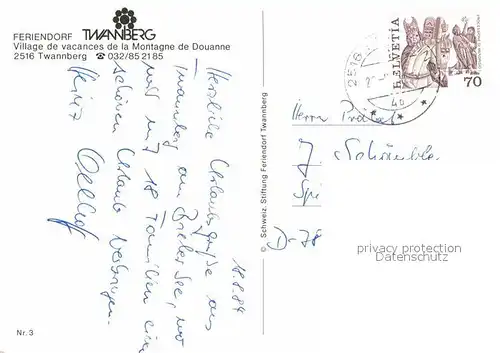 FERIENDORF TWANNBERG
Village de vacances de la Montagne de Douanne
2516 Twannberg ☎ 032/85 21 85
18.8.84
Herzliche Urlaubsgrüße aus
Twannberg am Bieler See, wo
wir mit 18 Familien einen
schönen Urlaub verbringen.
Heinz
Nr. 3
© Schweiz. Stiftung Feriendorf Twannberg
2516
HELVETIA
70
Herrn
J. Schäuble
D-78
privacy protection
Datenschutz